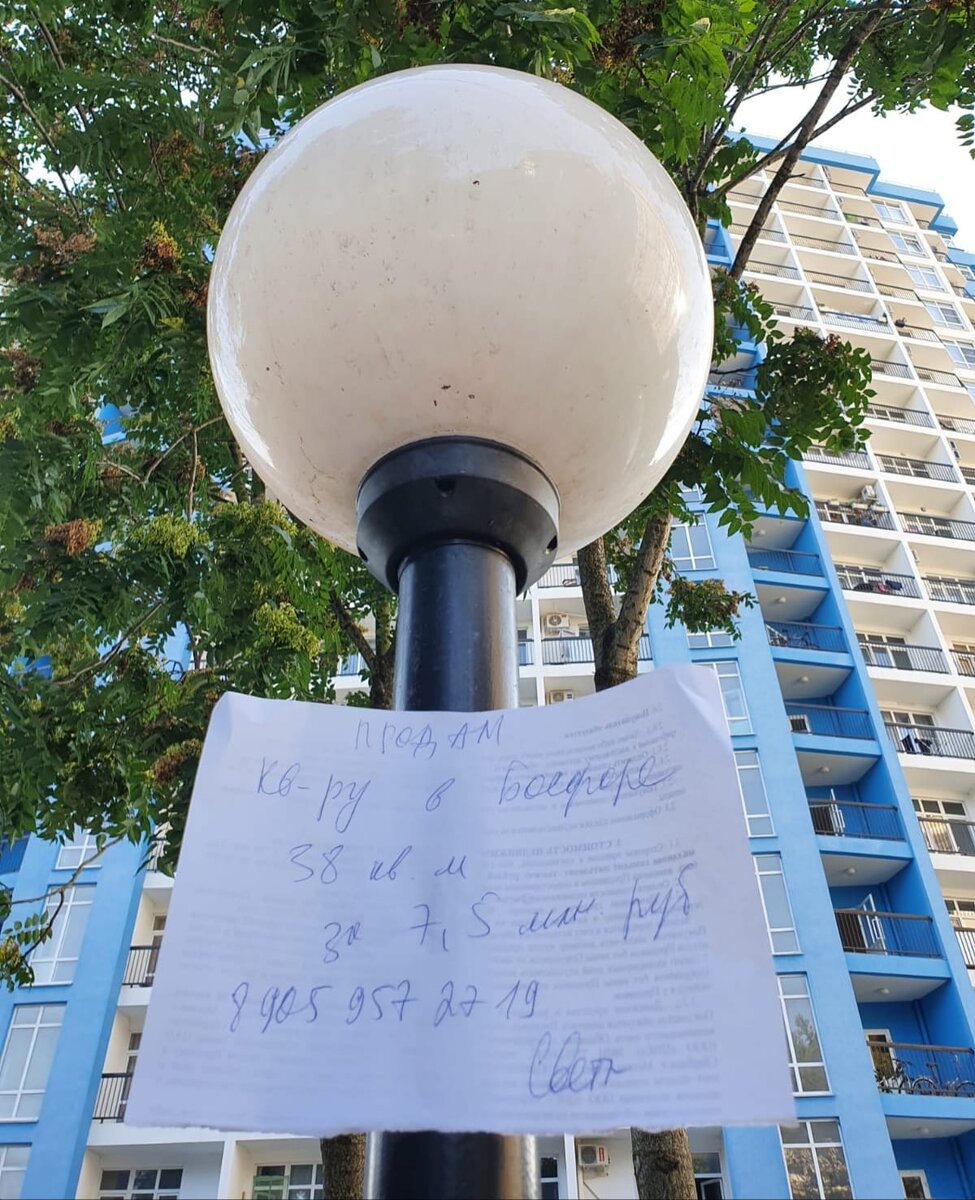 ПРОДАМ
кв-ру в Босфоре
38 кв. м
за 7,5 млн руб
8 905 957 27 19
Света